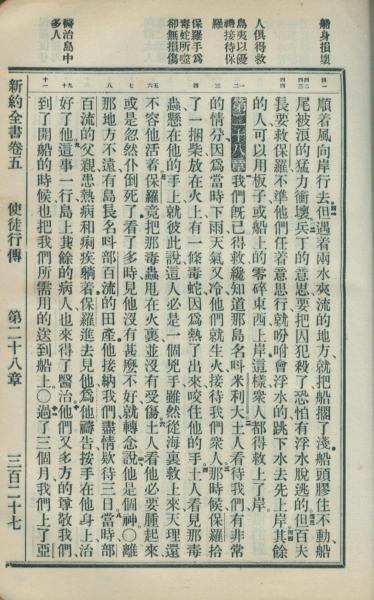 船身損壞
人俱得救
島夷以優
禮接待保
羅
保羅手為
毒蛇所噬
卻無損傷
醫治島中
多人
順着風向岸行去但遇着兩水夾流的地方就把船擱了淺船頭膠住不動船
尾被浪的猛力衝壞兵丁的意思要把囚犯殺了恐怕有浮水脫逃的但百夫
長要救保羅不準他們任着意思行就吩咐會浮水的跳下水去先上岸其餘
的人可以用板子或船上的零碎東西上岸這樣衆人都得救上了岸
第二十八章我們旣已得救纔知道那島名呌米利大土人看待我們有非常
的情分因爲當時下雨天氣又冷他們就生火接待我們衆人那時候保羅拾
了一捆柴放在火上有一條毒蛇因爲熱了出來咬住他的手土人看見那毒
蟲懸在他的手上就彼此說這人必是一個兇手雖然從海裏救上來天理還
不容他活着保羅竟把那毒蟲甩在火裏並沒有受傷土人看他必要腫起來
或是忽然仆倒死了看了多時見他沒有甚麼不好就轉念說他是個神〇離
那地方不遠有島長名呌部百流的田產他接納我們盡情欵待三日當時部
百流的父親患熱病和痢疾躺着保羅進去見他爲他禱告按手在他身上治
好了他這事一行島上其餘的病人也來得了醫治他們又多方的尊敬我們
到了開船的時候也把我們所需用的送到船上〇過了三個月我們上了亞
新約全書卷五 使徒行傳 第二十八章 三百二十七